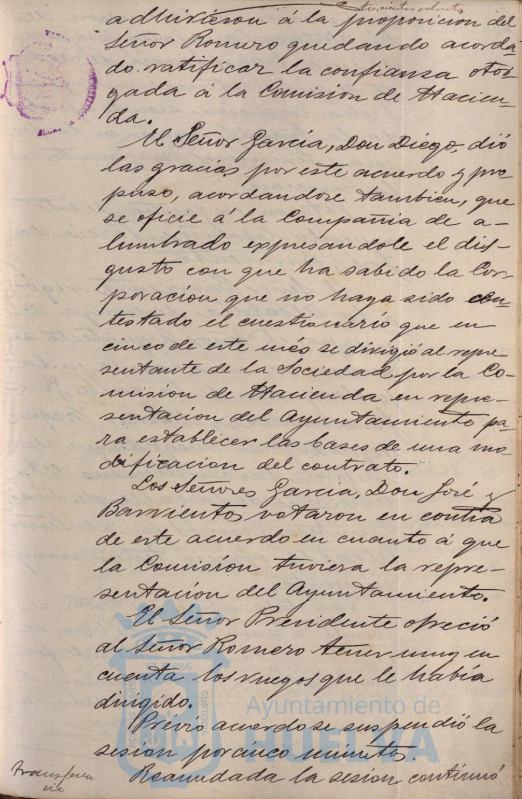 adhirieron á la proposicion del
Señor Romero quedando acorda
do ratificar la confianza otor
gada á la Comision de Hacien-
da.
El Señor Garcia, Don Diego, dió
las gracias por este acuerdo y pro
puso, acordandose tambien, que
se oficie á la Compañia de a-
lumbrado expresandole el dis-
gusto con que ha sabido la Cor-
poracion que no haya sido con-
testado el cuestionario que en
cinco de este mes se dirigió al repre-
sentante de la Sociedad por la Co-
mision de Hacienda en repre-
sentacion del Ayuntamiento pa
ra establecer las bases de una mo
dificacion del contrato.
Los Señores Garcia, Don José y
Barrientos votaron en contra
de este acuerdo en cuanto á que
la Comisión tuviera la repre-
sentacion del Ayuntamiento.
El Señor Presidente ofreció
al Señor Romero tener muy en
cuenta los ruegos que le habia
dirigido.
Ayuntamiento de
HUELVA
Previo acuerdo se suspendió la
sesion por cinco minutos.
Transferen
cia
Reanudada la sesion continuó